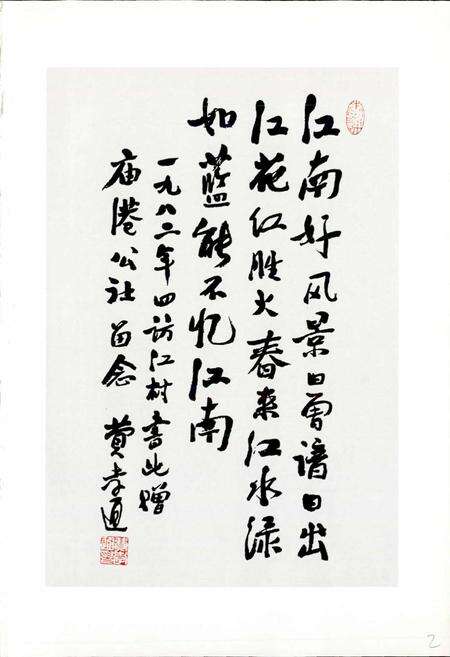 江南好风景旧曾谙日出
江花红胜火春来江水绿
如蓝能不忆江南
一九八二年四访江村書此赠
庙港公社留念 费孝通
2